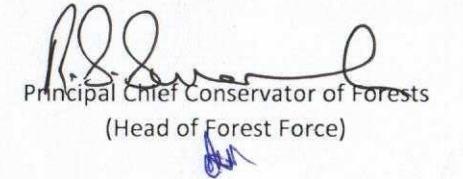 Principal Chief Conservator of Forests
(Head of Forest Force)